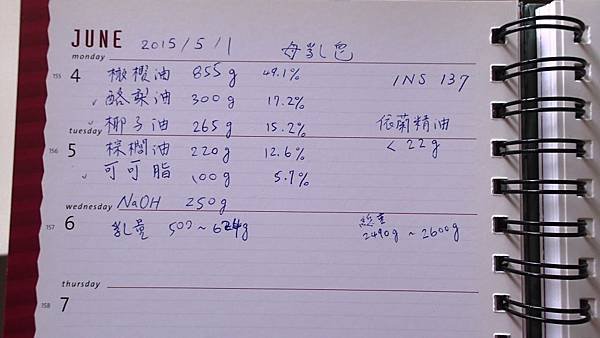 JUNE 2015/5/1 母乳皂
monday
155 4 橄欖油 855g 49.1% INS 137
酪梨油 300g 17.2%
椰子油 265g 15.2% 依蘭精油
tuesday
156 5 棕櫚油 220g 12.6% < 22g
可可脂 100g 5.7%
wednesday NaOH 250g
157 6 乳量 500~624g 總重
2490g ~ 2600g
thursday
158 7